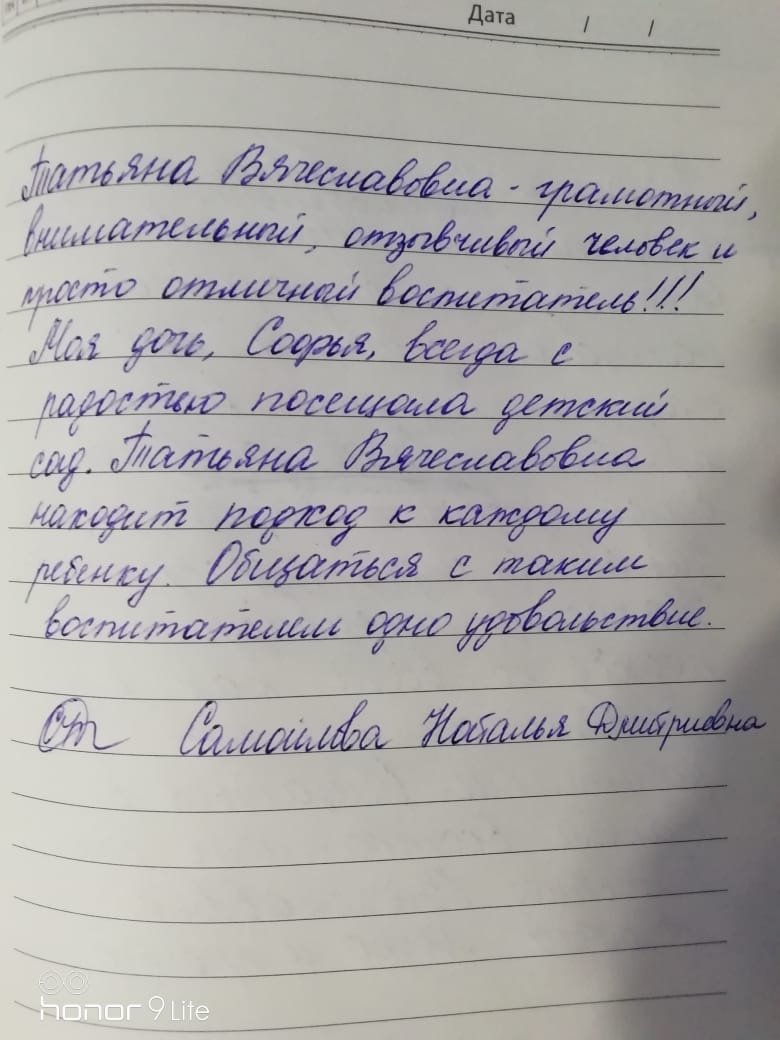 Дата / /
Татьяна Вячеславовна - грамотный,
внимательный, отзывчивый человек и
просто отличный воспитатель!!!
Моя дочь, Софья, всегда с
радостью посещала детский
сад. Татьяна Вячеславовна
находит подход к каждому
ребенку. Общаться с таким
воспитателем одно удовольствие.
Самойлова Наталья Дмитриевна
honor 9 Lite